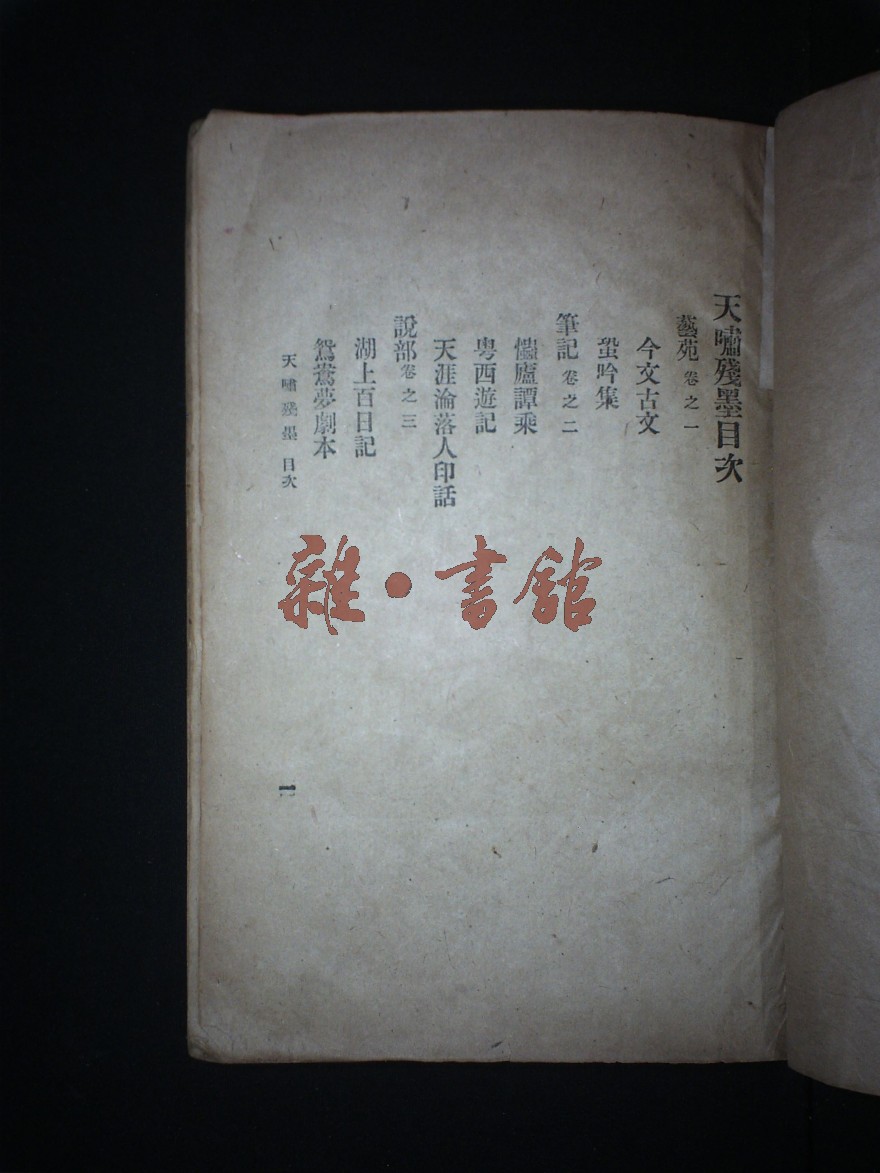 天嘯殘墨目次
藝苑 卷之一
今文古文
蛩吟集
筆記 卷之二
慵廬譚乘
粵西遊記
天涯淪落人印話
說部 卷之三
湖上百日記
鴛鴦夢劇本
天嘯殘墨 目次
一
雜·書館